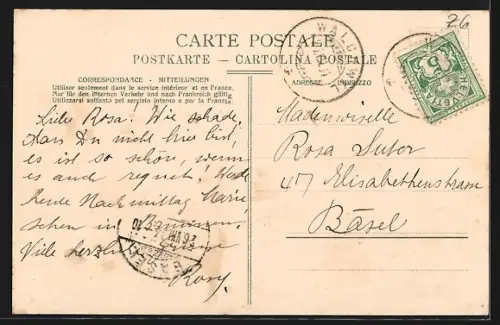 26
CARTE POSTALE
POSTKARTE - CARTOLINA POSTALE
CORRESPONDANCE - MITTEILUNGEN
Utiliser seulement dans le service intérieur et en France.
Nur für den internen Verkehr und nach Frankreich gültig
Utilizzarsi soltanto pel servizio interno e per la Francia.
ADRESSE - INDIRIZZO
HELVETIA
5
Liebe Rosa. Wie schade,
dass Du nicht hier bist,
es ist so schön, wenn
es auch regnet! Werde
heute Nachmittag
schen in
Viele herzl.
Rosy
Mademoiselle
Rosa Suter
47 Elisabethenstrasse
Basel